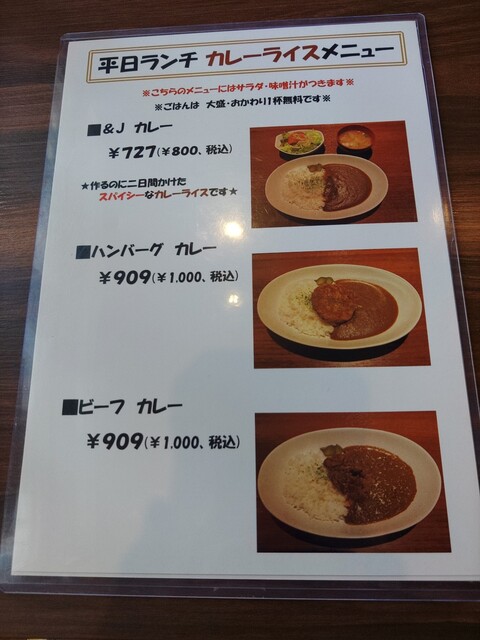 平日ランチ カレーライスメニュー
※こちらのメニューにはサラダ・味噌汁がつきます※
※ごはんは 大盛・おかわり1杯無料です※
■&J カレー
¥727(¥800、税込)
★作るのに二日間かけた
スパイシーなカレーライスです★
■ハンバーグ カレー
¥909(¥1.000、税込)
■ビーフ カレー
¥909(¥1.000、税込)